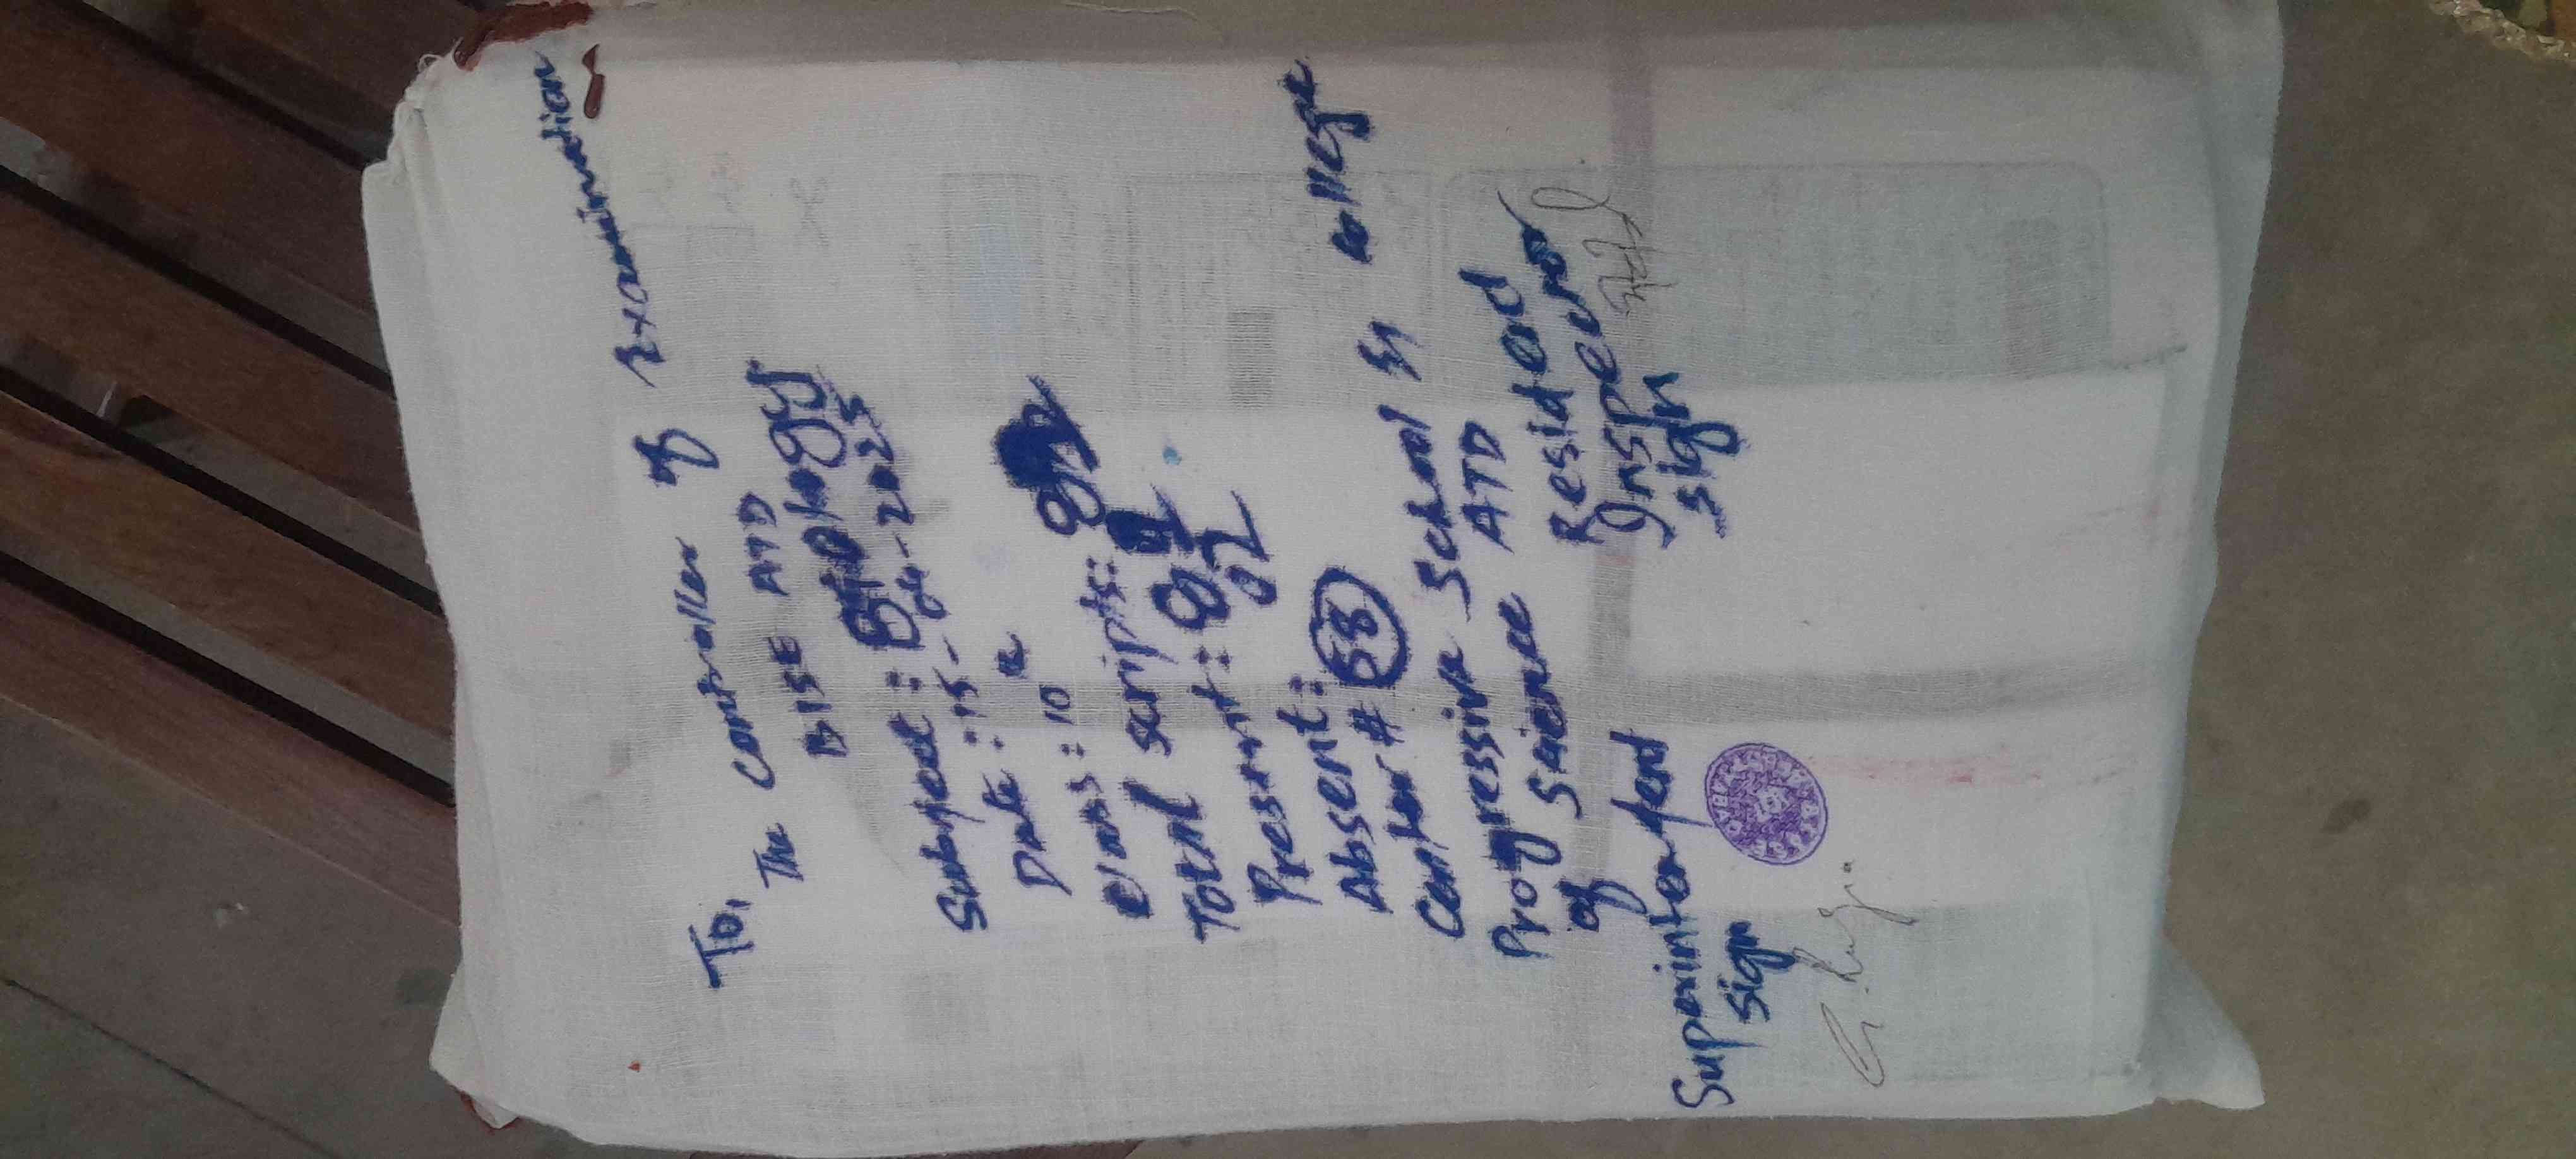 To,
The controller of Examination
BISE ATD
Subject: Biology
Date: 15-04-2025
class: 10th
Total scripts: 82
Present: 81
Absent: 01
Center # 58
Progressive School & college
of Science ATD
Superintendent Resident
sign Inspector
sign